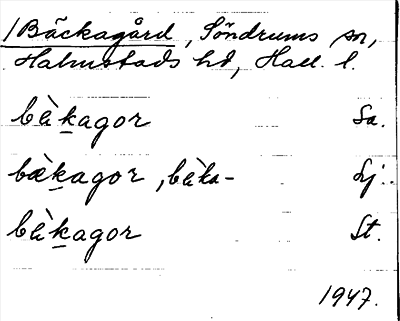 /Bäckagård, Söndrums sn,
Halmstads hd, Hall. l.
bæ̀kagor Sa.
bæ̀kagor, bæ̀ka- Lj.
bæ̀kagor St.
1947.